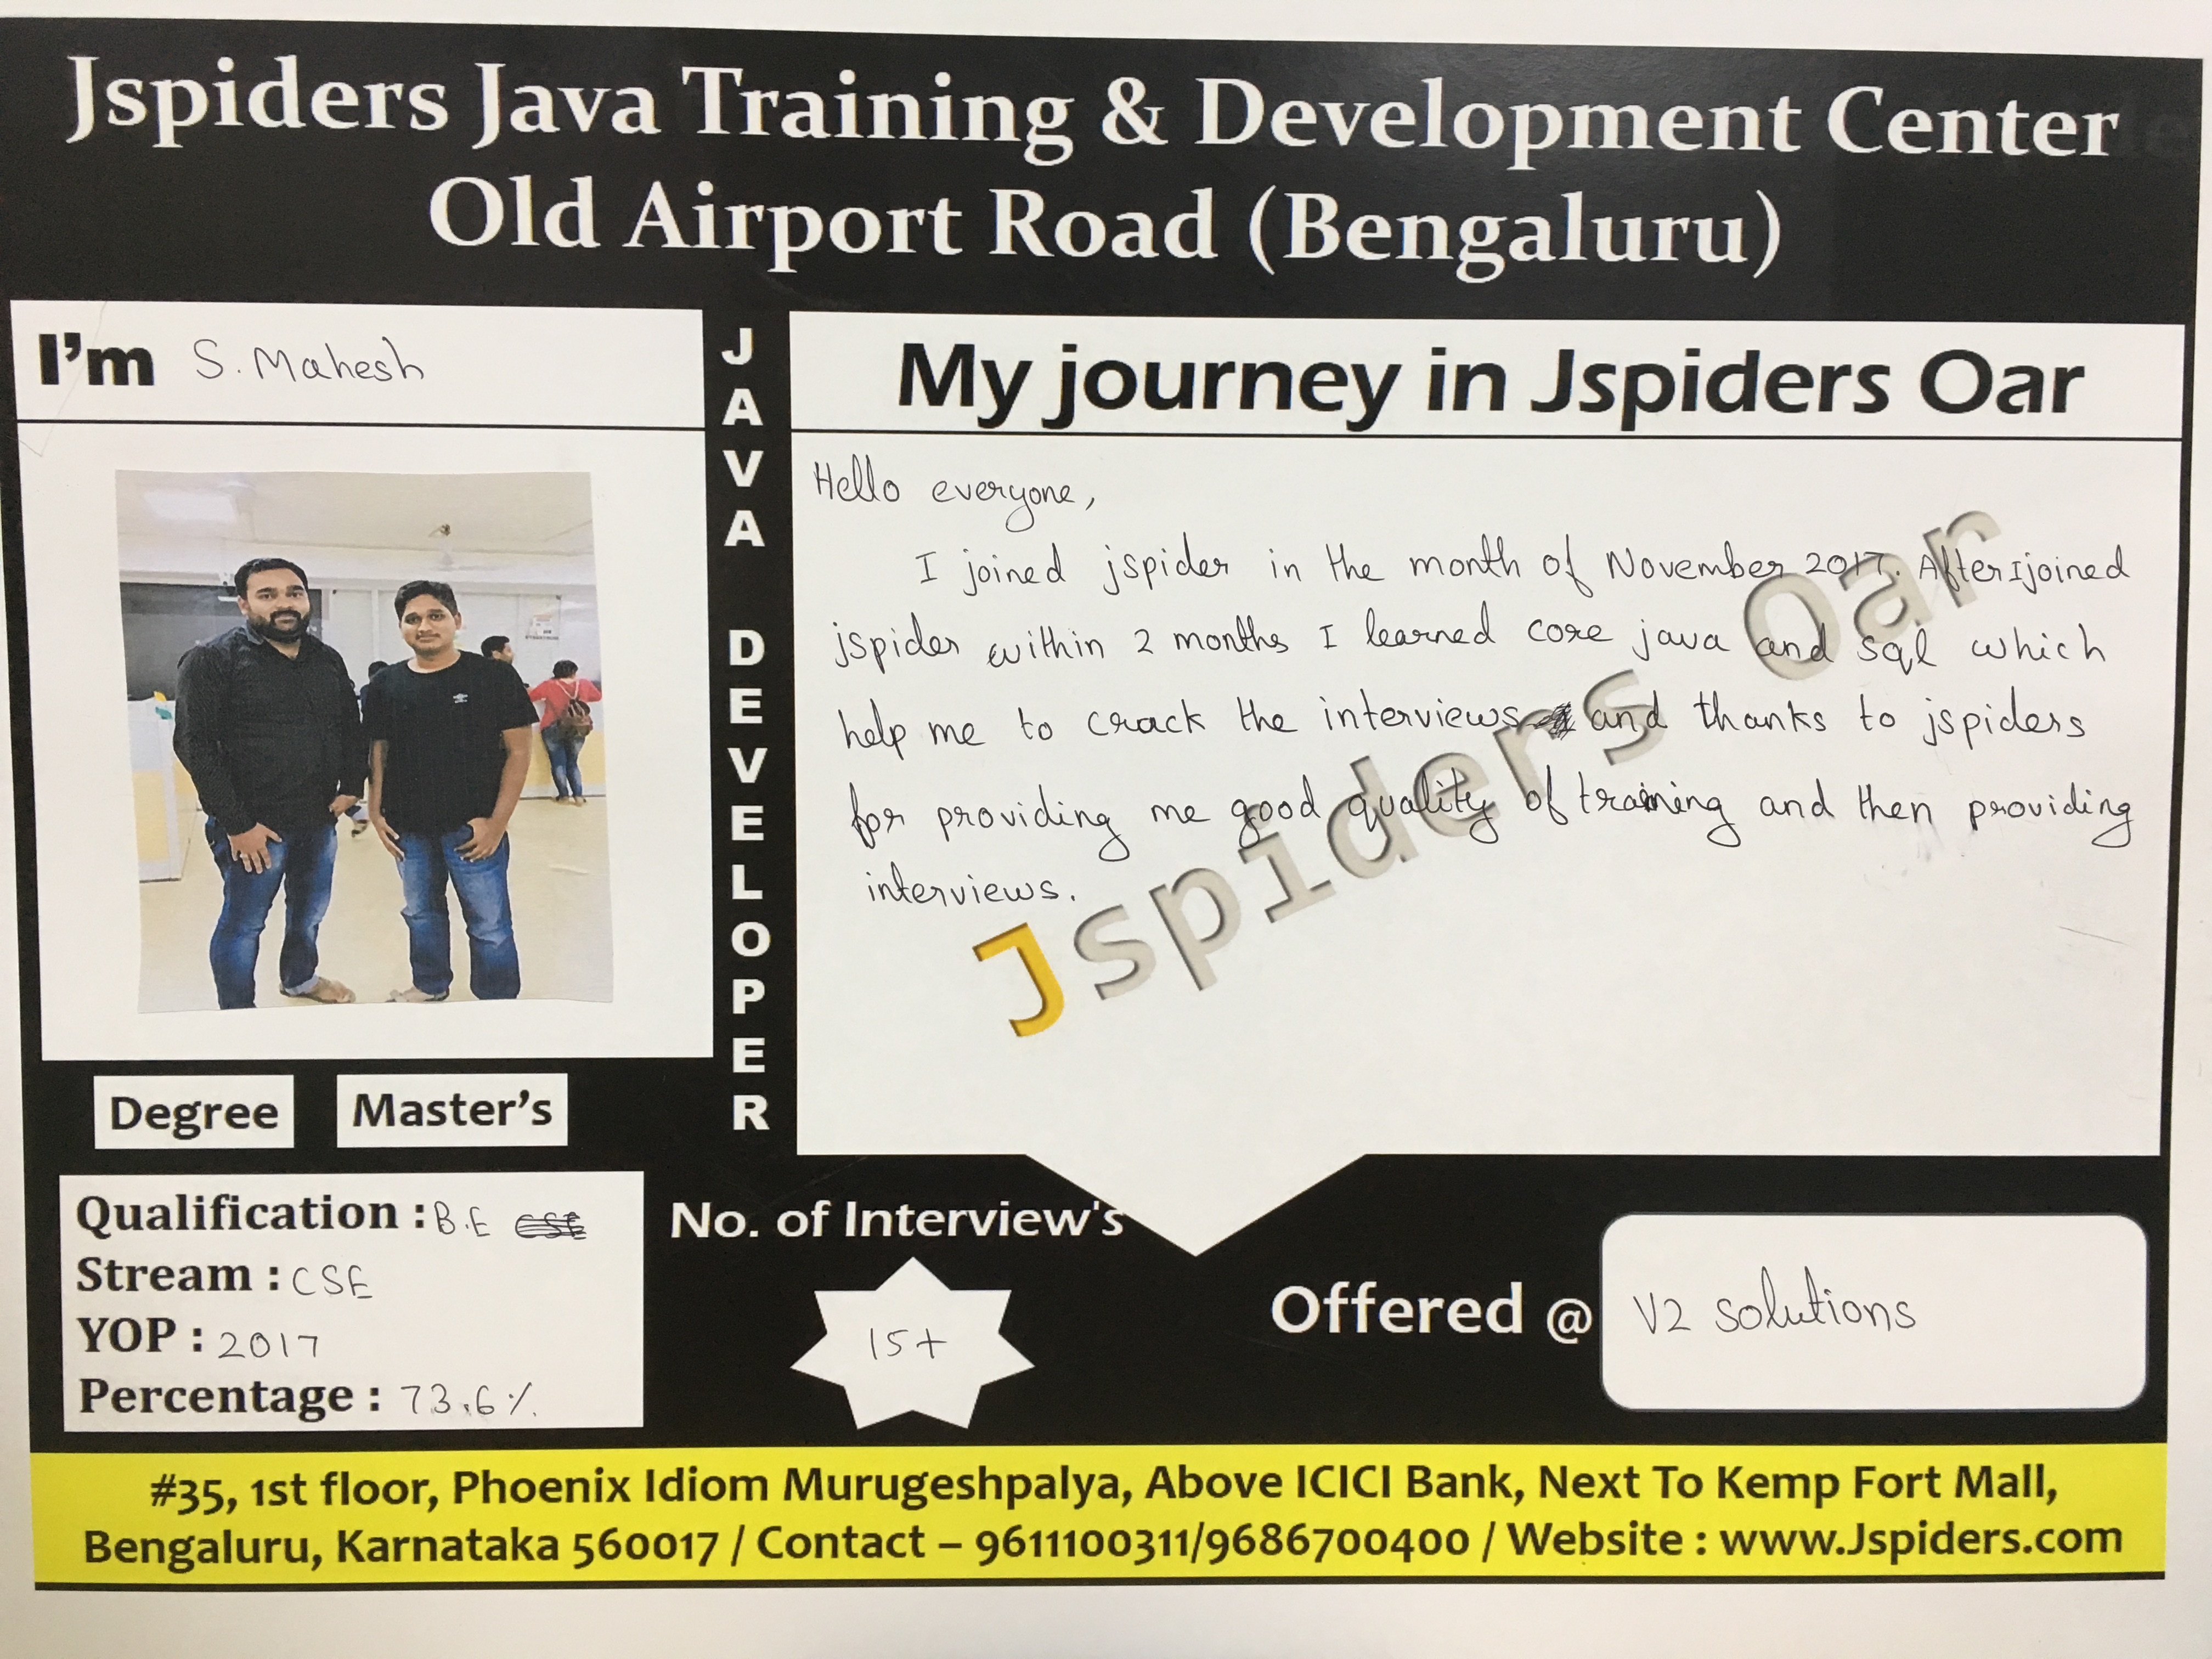 Jspiders Java Training & Development Center
Old Airport Road (Bengaluru)
I'm S. Mahesh
JAVA DEVELOPER
My journey in Jspiders Oar
Hello everyone,
I joined jspider in the month of November 2017. After I joined
jspider within 2 months I learned core java and sql which
help me to crack the interviews and thanks to jspiders
for providing me good quality of training and then providing
interviews.
Jspiders Oar
Degree Master's
Qualification : B.E CSE
Stream : CSE
YOP : 2017
Percentage : 73.6%
No. of Interview's
15+
Offered @ V2 solutions
#35, 1st floor, Phoenix Idiom Murugeshpalya, Above ICICI Bank, Next To Kemp Fort Mall,
Bengaluru, Karnataka 560017 / Contact – 9611100311/9686700400 / Website : www.Jspiders.com